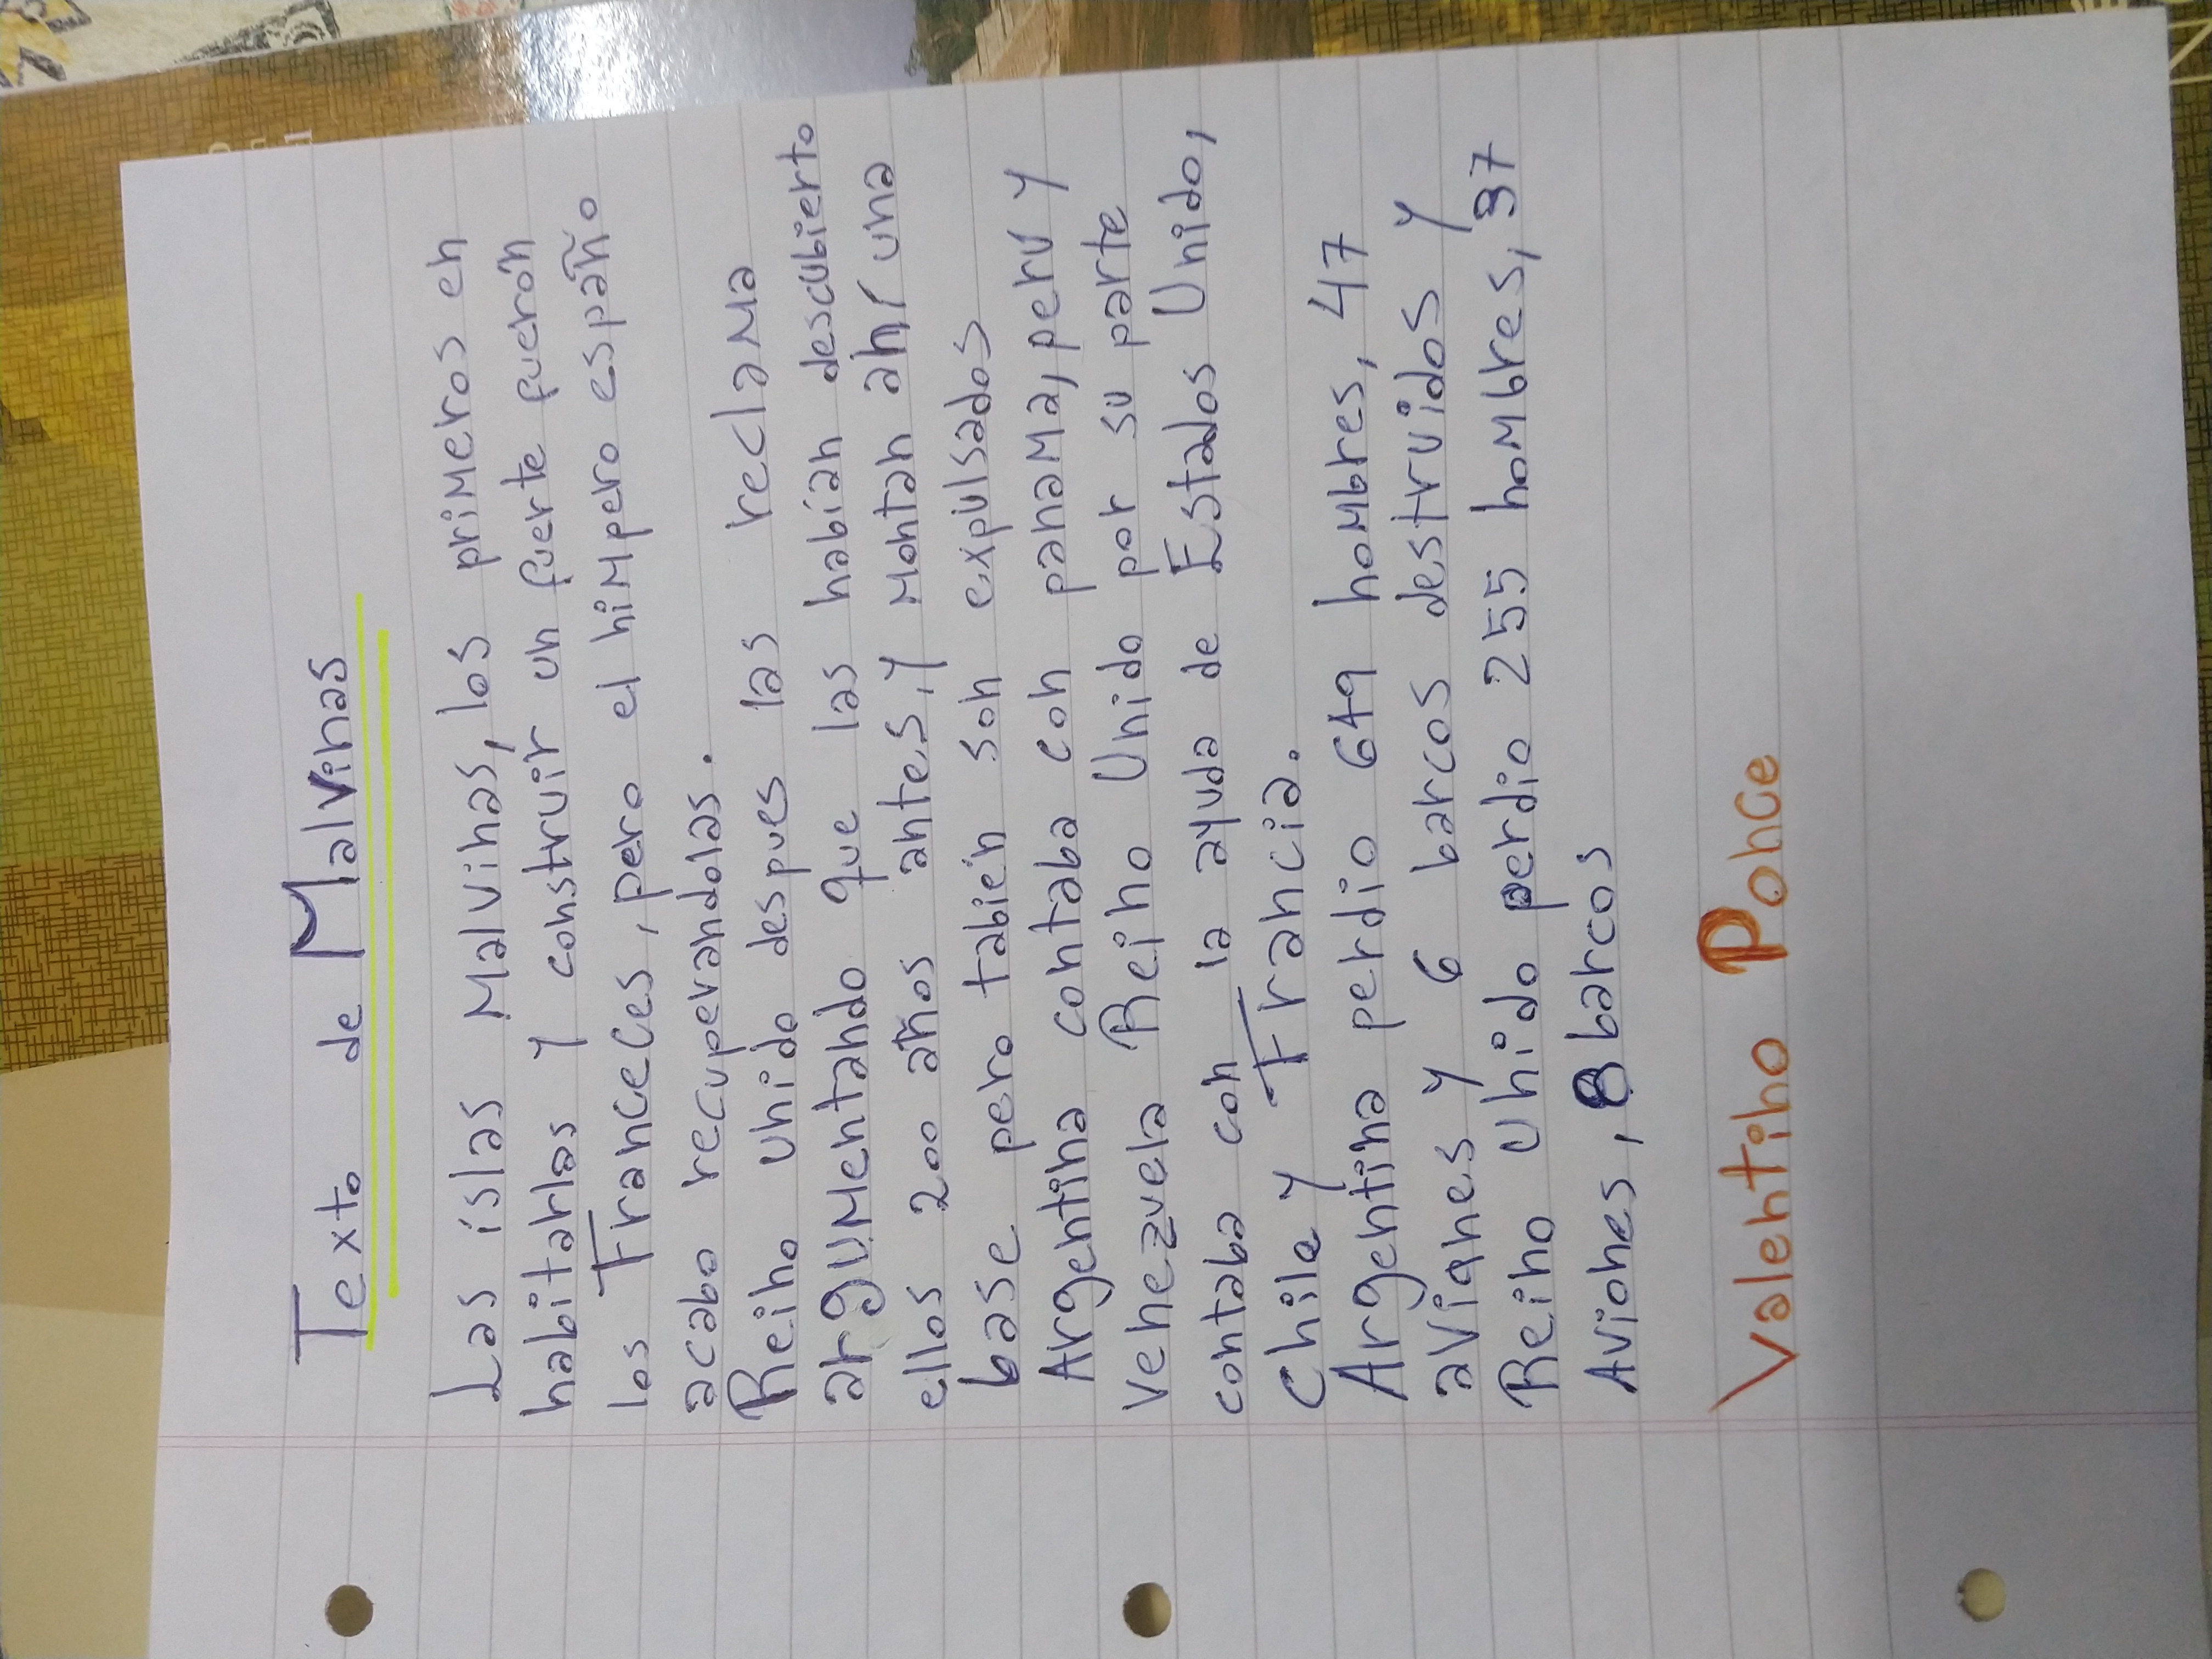 Texto de Malvinas
Las islas Malvinas, los primeros en
habitarlas y construir un fuerte fuerón
los Franceces, pero el himpero españo
acabo recuperandolas.
Reino unido despues las reclama
argumentando que las habían descubierto
ellos 200 años antes, y montan ahí una
base pero tabién son expulsados
Argentina contaba con panama, peru y
venezuela Reino Unido por su parte
contaba con la ayuda de Estados Unido,
Chile y Francia.
Argentina perdio 649 hombres, 47
aviones y 6 barcos destruidos y
Reino Unido perdio 255 hombres, 37
Aviones, 8 barcos
Valentino Ponce